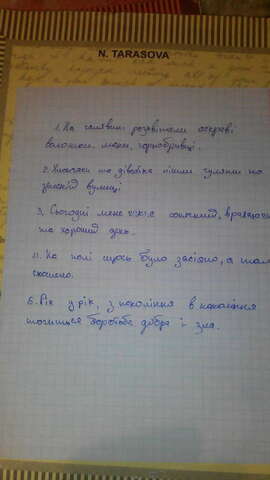 N. TARASOVA
1. На галявині розквітали яскраві
волошки, маки, чорнобривці.
2. Хлопчик та дівчинка пішли гуляти по
зеленій вулиці
3. Сьогодні мене чекає сонячний,
та хороший день.
На полі щось було засіяно, а там
скошено.
Рік у рік, з покоління в покоління
точиться боротьба добра і зла.